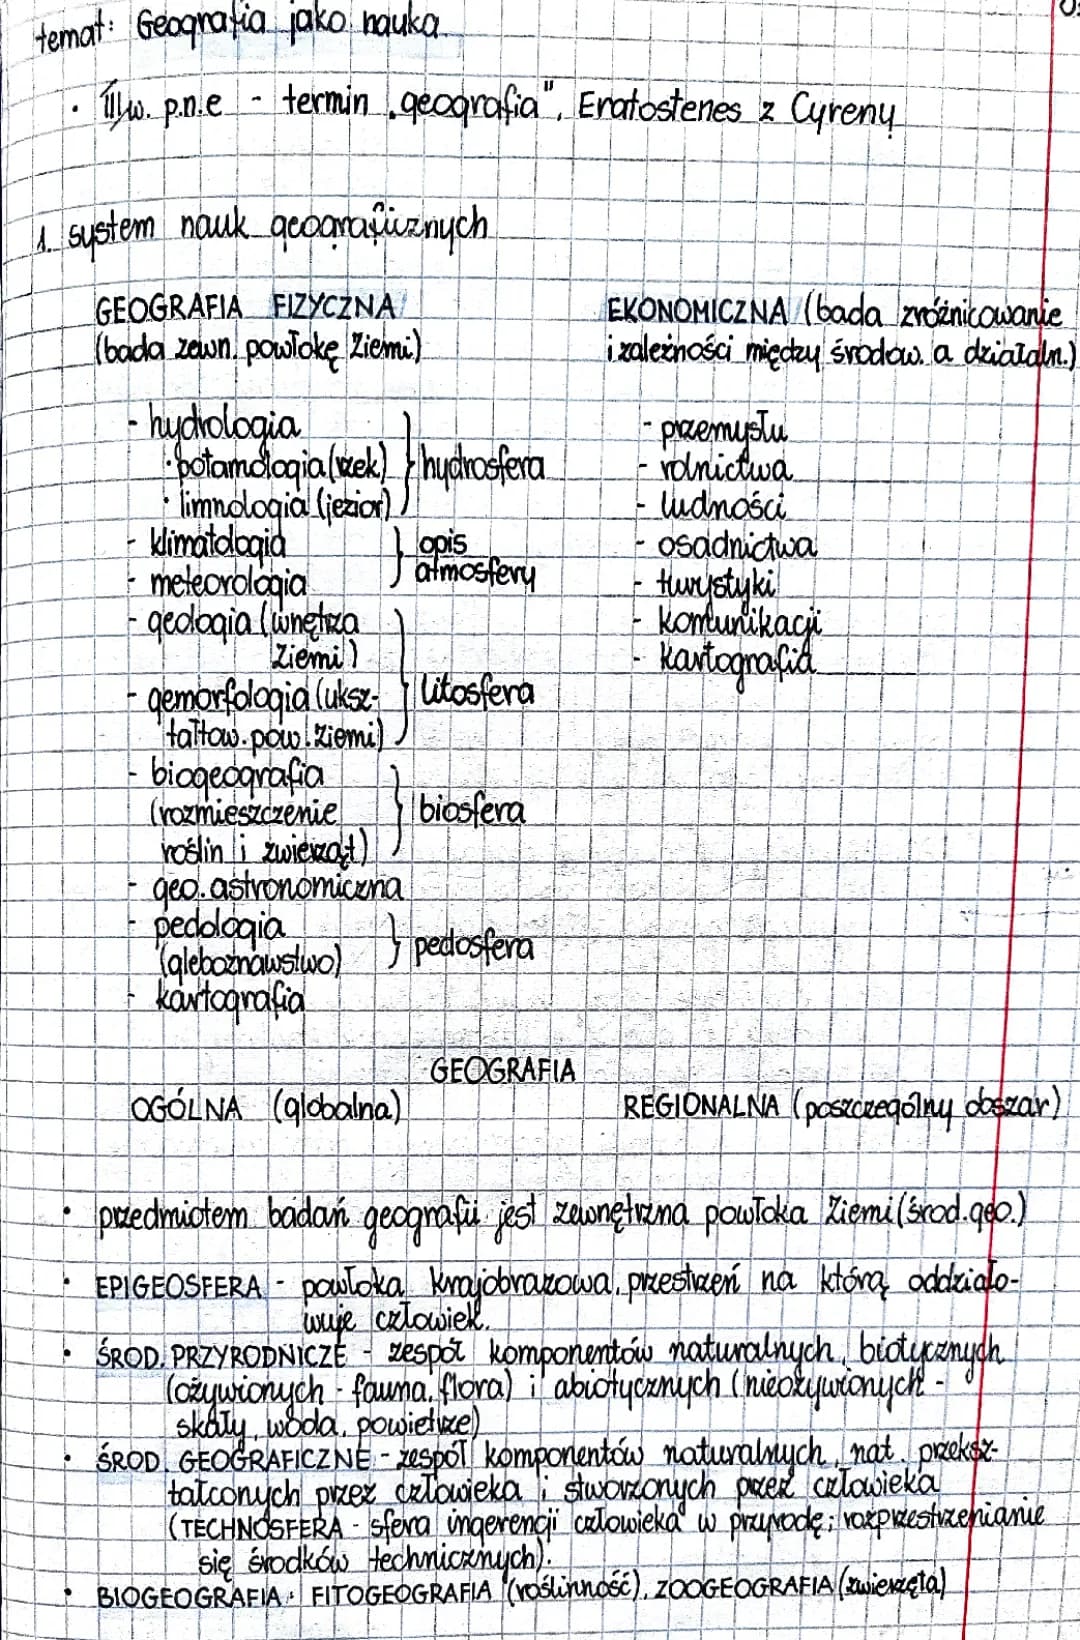 temat: Geografia jako nauka
• III w. p.n.e - termin „geografia", Eratostenes z Cyreny
1. system nauk geograficznych
GEOGRAFIA FIZYCZNA
(bada zewn. powłokę Ziemi)
- hydrologia
• potamologia (rzek)
• limnologia (jezior)
} hydrosfera
- klimatologia
- meteorologia
} opis
atmosfery
- geologia (wnętrza
Ziemi)
- gemorfologia (uksz-
tałtow. pow. Ziemi)
} litosfera
- biogeografia
(rozmieszczenie
roślin i zwierząt)
} biosfera
- geo. astronomiczna
- pedologia
(gleboznawstwo)
} pedosfera
- kartografia
EKONOMICZNA (bada zróżnicowanie
i zależności między środow. a działaln.)
- przemysłu
- rolnictwa
- ludności
- osadnictwa
- turystyki
- komunikacji
- kartografia
GEOGRAFIA
OGÓLNA (globalna)
REGIONALNA (poszczególny obszar)
• przedmiotem badań geografii jest zewnętrzna powłoka Ziemi (środ. geo.)
• EPIGEOSFERA - powłoka krajobrazowa, przestrzeń na którą oddziało-
wuje człowiek.
• ŚROD. PRZYRODNICZE - zespół komponentów naturalnych, biotycznych
(ożywionych - fauna, flora) i abiotycznych (nieożywionych -
skały, woda, powietrze)
• ŚROD. GEOGRAFICZNE - zespół komponentów naturalnych, nat. przeksz-
tałconych przez człowieka i stworzonych przez człowieka
(TECHNOSFERA - sfera ingerencji człowieka w przyrodę; rozprzestrzenianie
się środków technicznych).
• BIOGEOGRAFIA: FITOGEOGRAFIA (roślinność), ZOOGEOGRAFIA (zwierzęta)